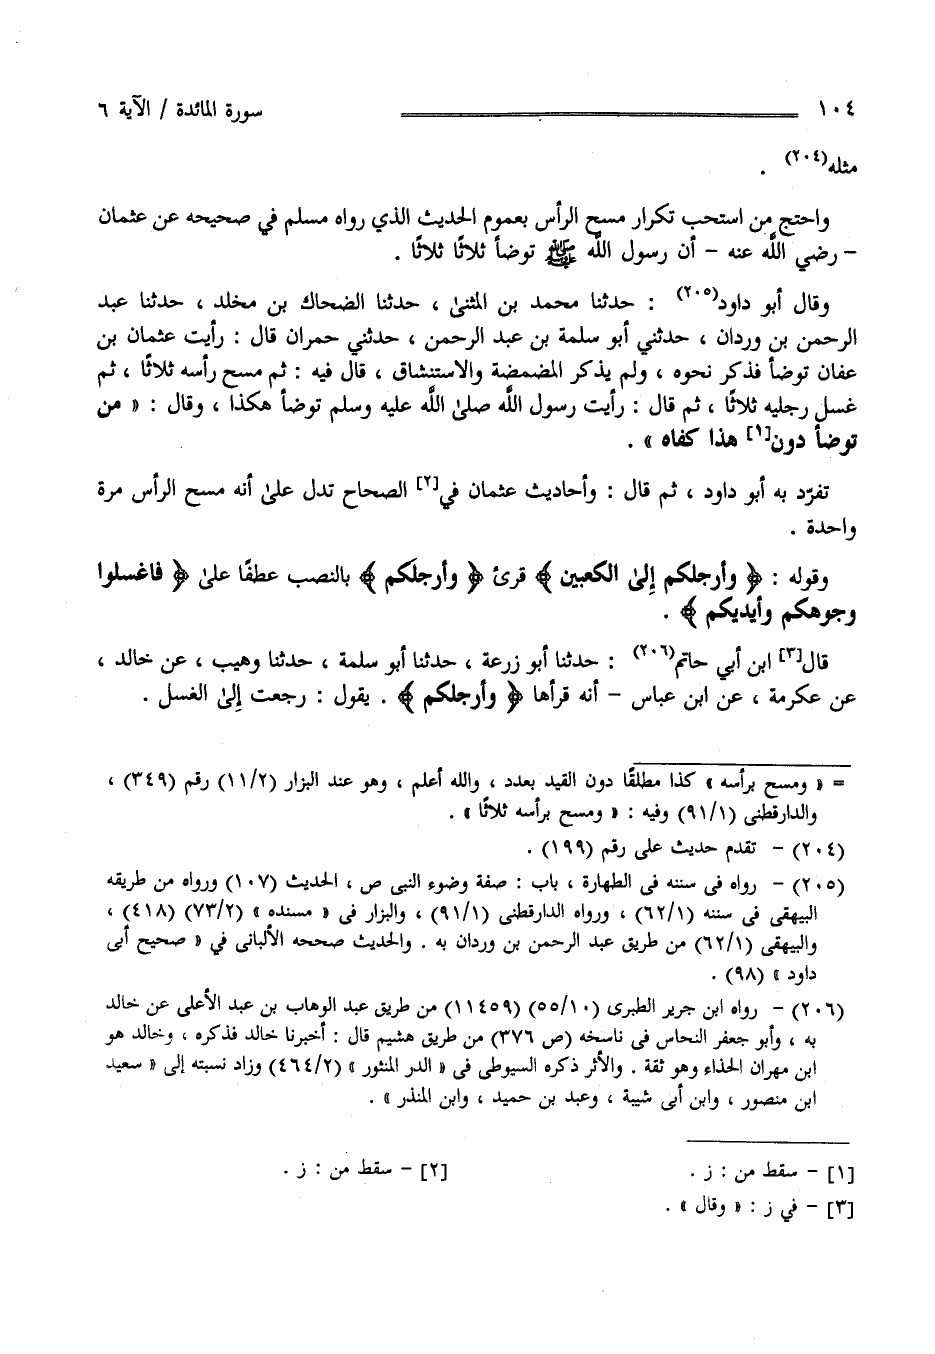 ١٠٤ سورة المائدة / الآية ٦
مثله(٢٠٤) .
واحتج من استحب تكرار مسح الرأس بعموم الحديث الذي رواه مسلم في صحيحه عن عثمان
– رضي اللَّه عنه – أن رسول اللَّه ﷺ توضأ ثلاثًا ثلاثًا .
وقال أبو داود(٢٠٥) : حدثنا محمد بن المثنىٰ ، حدثنا الضحاك بن مخلد ، حدثنا عبد
الرحمن بن وردان ، حدثني أبو سلمة بن عبد الرحمن ، حدثني حمران قال : رأيت عثمان بن
عفان توضأ فذكر نحوه ، ولم يذكر المضمضة والاستنشاق ، قال فيه : ثم مسح رأسه ثلاثًا ، ثم
غسل رجليه ثلاثًا ، ثم قال : رأيت رسول اللَّه صلىٰ اللَّه عليه وسلم توضأ هكذا ، وقال : « من
توضأ دون[١] هذا كفاه » .
تفرّد به أبو داود ، ثم قال : وأحاديث عثمان في[٢] الصحاح تدل علىٰ أنه مسح الرأس مرة
واحدة .
وقوله : ﴿ وأرجلكم إلىٰ الكعبين ﴾ قرئ ﴿ وأرجلَكم ﴾ بالنصب عطفًا علىٰ ﴿ فاغسلوا
وجوهكم وأيديكم ﴾ .
قال[٣] ابن أبي حاتم(٢٠٦) : حدثنا أبو زرعة ، حدثنا أبو سلمة ، حدثنا وهيب ، عن خالد ،
عن عكرمة ، عن ابن عباس – أنه قرأها ﴿ وأرجلكم ﴾ . يقول : رجعت إلىٰ الغسل .
= « ومسح برأسه » كذا مطلقًا دون القيد بعدد ، والله أعلم ، وهو عند البزار (١١/٢) رقم (٣٤٩) ،
والدارقطنى (٩١/١) وفيه : « ومسح برأسه ثلاثًا » .
(٢٠٤) – تقدم حديث على رقم (١٩٩) .
(٢٠٥) – رواه فى سننه فى الطهارة ، باب : صفة وضوء النبى ص ، الحديث (١٠٧) ورواه من طريقه
البيهقى فى سننه (٦٢/١) ، ورواه الدارقطنى (٩١/١) ، والبزار فى « مسنده » (٧٣/٢) (٤١٨) ،
والبيهقى (٦٢/١) من طريق عبد الرحمن بن وردان به . والحديث صححه الألبانى في « صحيح أبى
داود » (٩٨) .
(٢٠٦) – رواه ابن جرير الطبرى (٥٥/١٠) (١١٤٥٩) من طريق عبد الوهاب بن عبد الأعلى عن خالد
به ، وأبو جعفر النحاس فى ناسخه (ص ٣٧٦) من طريق هشيم قال : أخبرنا خالد فذكره ، وخالد هو
ابن مهران الحذاء وهو ثقة . والأثر ذكره السيوطى فى « الدر المنثور » (٤٦٤/٢) وزاد نسبته إلى « سعيد
ابن منصور ، وابن أبى شيبة ، وعبد بن حميد ، وابن المنذر » .
[١] – سقط من : ز . [٢] – سقط من : ز .
[٣] – في ز : « وقال » .